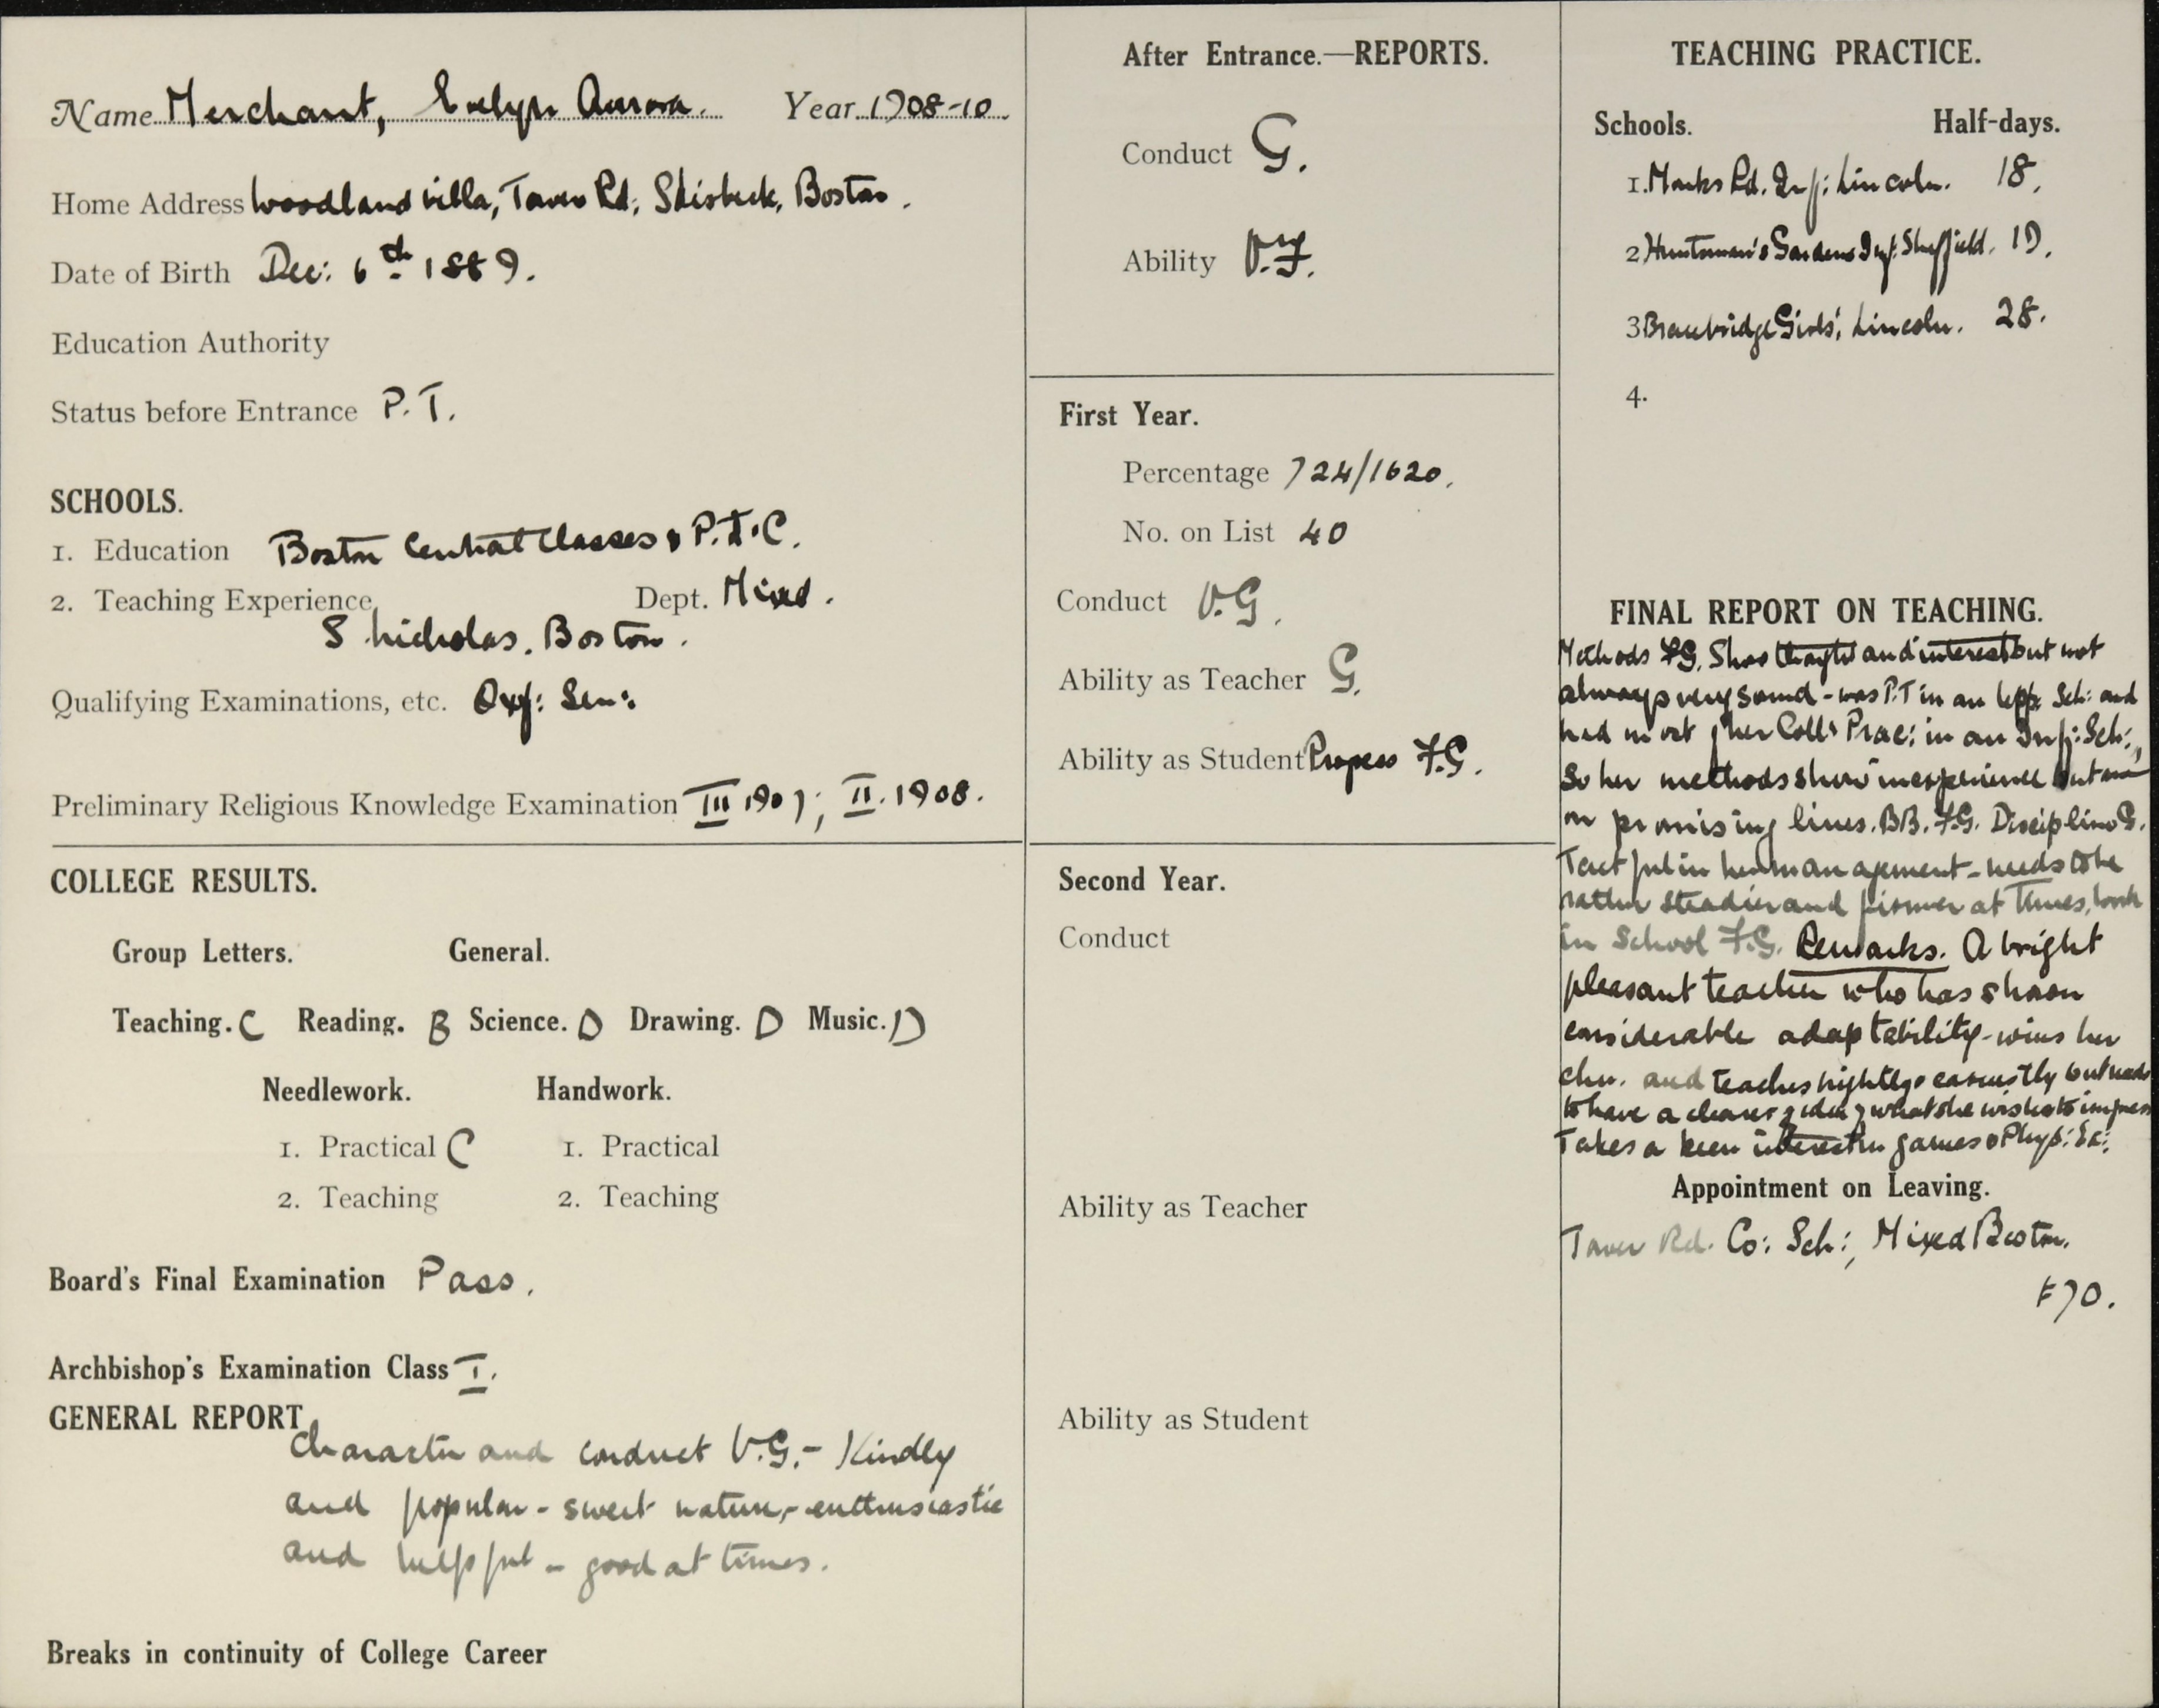 Name Merchant, Evelyn Aurora. Year 1908-10.
Home Address Woodland Villa, Tower Rd; Skirbeck, Boston.
Date of Birth Dec: 6th 1889.
Education Authority
Status before Entrance P.T.
SCHOOLS.
1. Education Boston Central Classes & P.T.C.
2. Teaching Experience Dept. Mixed.
S Nicholas, Boston.
Qualifying Examinations, etc. Oxf: Sen:
Preliminary Religious Knowledge Examination III 1907; II. 1908.
COLLEGE RESULTS.
Group Letters. General.
Teaching. C Reading. B Science. D Drawing. D Music. D
Needlework. Handwork.
1. Practical C 1. Practical
2. Teaching 2. Teaching
Board's Final Examination Pass.
Archbishop's Examination Class I.
GENERAL REPORT
Character and conduct V.G. - Kindly
and popular - sweet nature, - enthusiastic
and helpful - good at times.
Breaks in continuity of College Career
After Entrance.—REPORTS.
Conduct G.
Ability V.F.
First Year.
Percentage 724/1620.
No. on List 40
Conduct V.G.
Ability as Teacher G.
Ability as Student Progress F.G.
Second Year.
Conduct
Ability as Teacher
Ability as Student
TEACHING PRACTICE.
Schools. Half-days.
1. Monks Rd. Inf: Lincoln. 18.
2 Huntsman's Gardens Inf: Sheffield. 19.
3 Bracebridge Girls', Lincoln. 28.
4.
FINAL REPORT ON TEACHING.
Methods FG. Shows thought and interest but not
always very sound - was P.T in an Upp: Sch: and
had most of her Coll: Prac: in an Inf: Sch:,
So her methods show inexperience but are
on promising lines. BB. F.G. Discipline G.
Tactful in her management - needs to be
rather steadier and firmer at times, work
in School F.G. Remarks. A bright
pleasant teacher who has shown
considerable adaptability - wins her
chn. and teaches brightly & earnestly but needs
to have a clearer idea of what she wishes to impress
Takes a keen interest in games & Phys: Ex:
Appointment on Leaving.
Tower Rd. Co: Sch:, Mixed Boston.
£70.